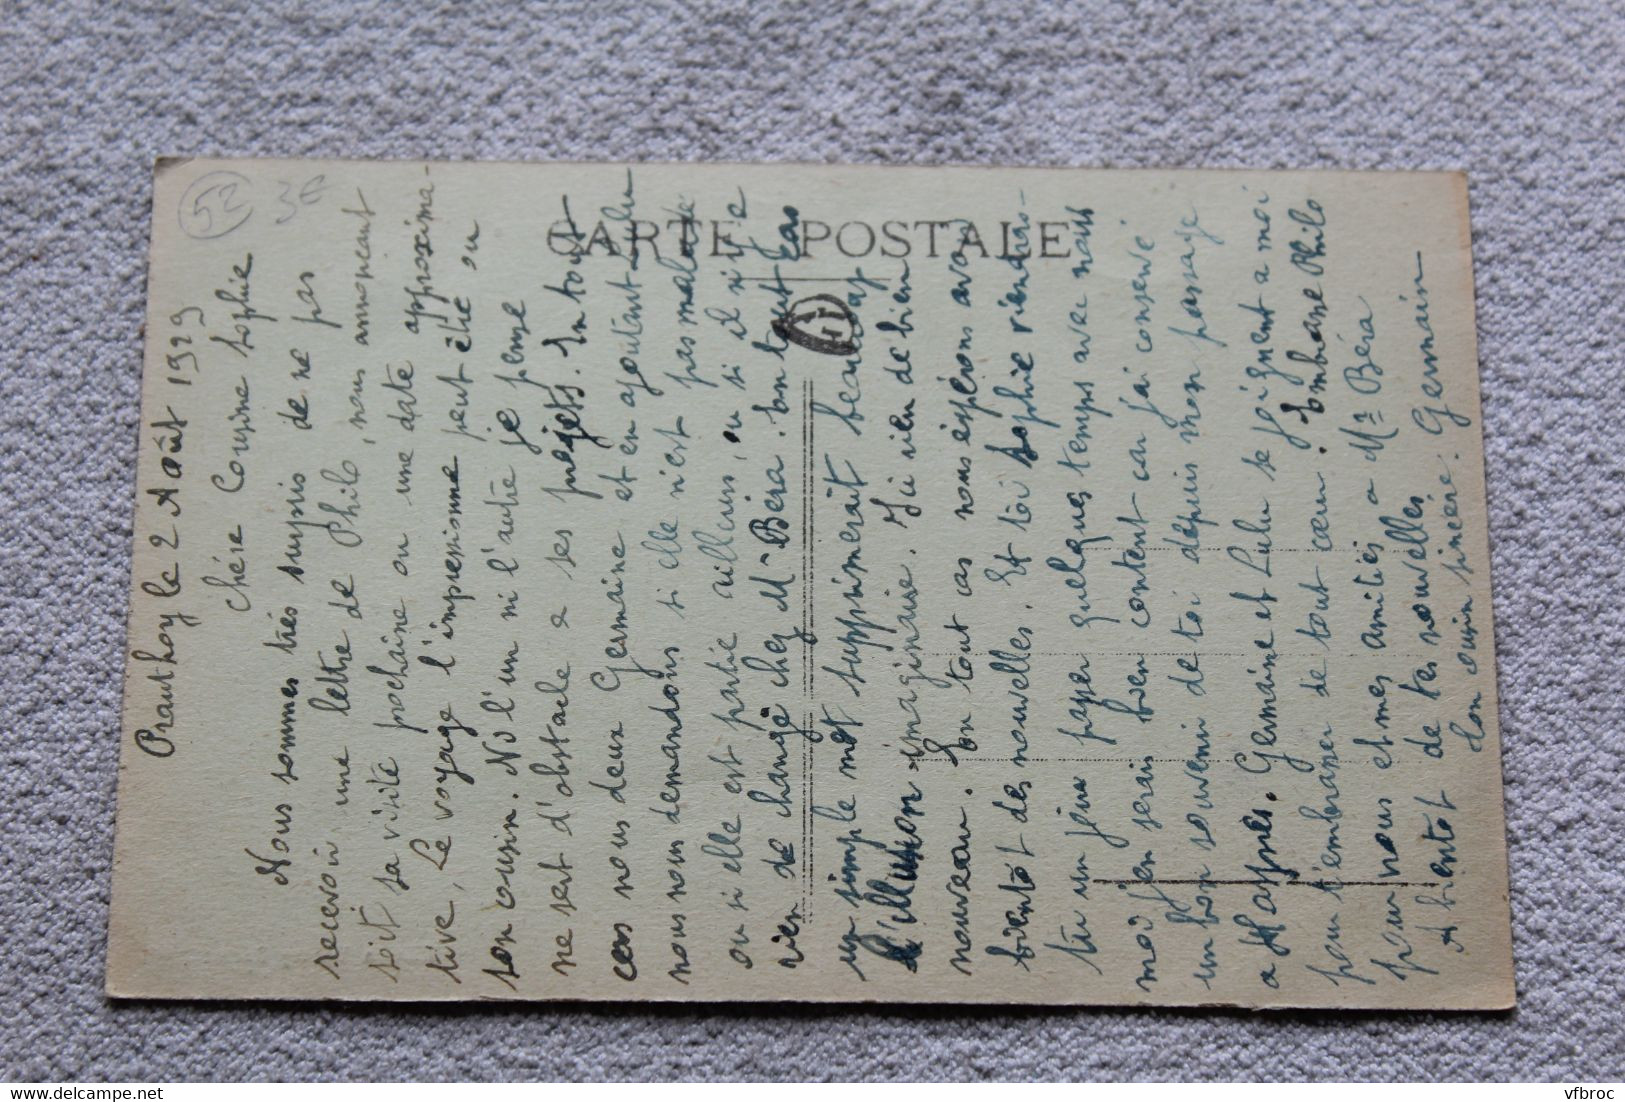 52
3€
CARTE POSTALE
Prauthoy le 2 Août 1929
Chère Cousine Sophie
Nous sommes très surpris de ne pas
recevoir une lettre de Philo, nous annonçant
soit sa visite prochaine ou une date approxima-
tive. Le voyage l'impressionne peut être ou
son cousin. Ni l'un ni l'autre je pense
ne sert d'obstacle a ses projets. En tout
cas nous deux Germaine et en ajoutant Lulu
nous nous demandons si elle n'est pas malade
ou si elle est partie ailleurs, ou si il n'y a
rien de changé chez Mr Béra. En tout cas
un simple mot supprimerait beaucoup
d'illusion imaginaire. Ici rien de bien
nouveau. En tout cas nous espérons avoir
bientôt des nouvelles. Et toi Sophie viendras-
tu un jour passer quelques temps avec nous
moi j'en serais bien content car j'ai conservé
un bon souvenir de toi depuis mon passage
a Haspres. Germaine et Lulu se joignent a moi
pour t'embrasser de tout cœur. Embrasse Philo
pour nous et mes amitiés a Mr Béra
A bientôt de tes nouvelles
Ton cousin sincère. Germain
vfbroc